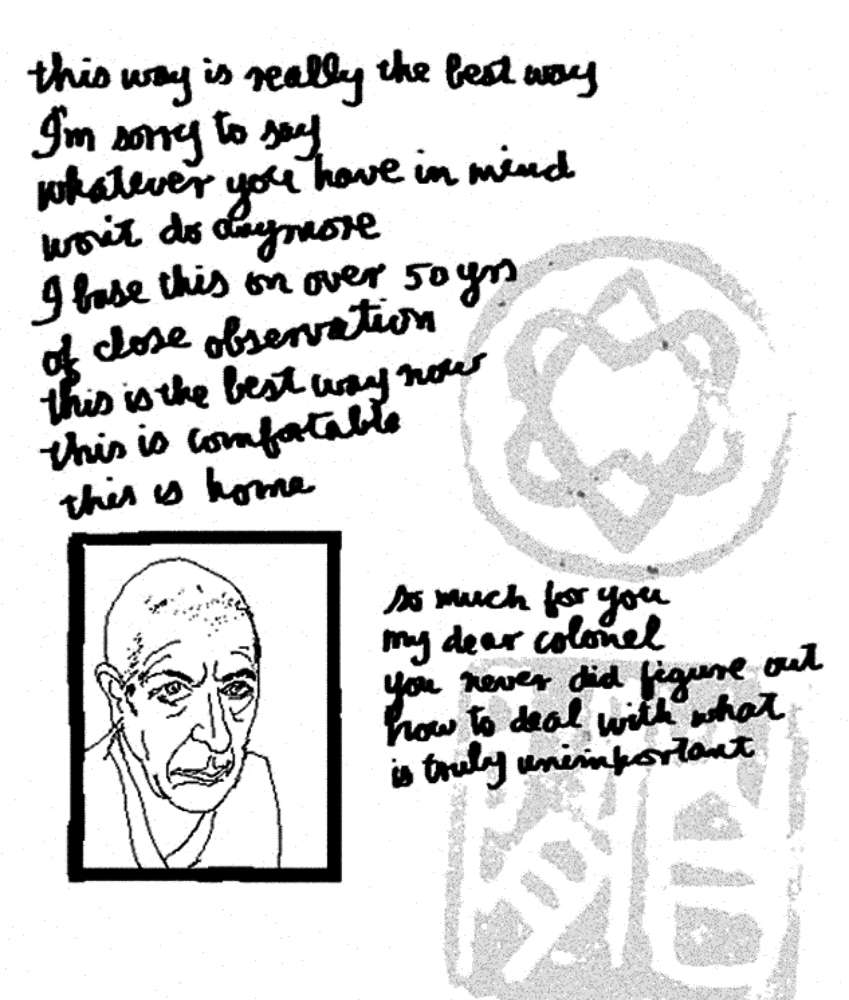 this way is really the best way
I'm sorry to say
whatever you have in mind
won't do anymore
I base this on over 50 yrs
of close observation
this is the best way now
this is comfortable
this is home
so much for you
my dear colonel
you never did figure out
how to deal with what
is truly unimportant